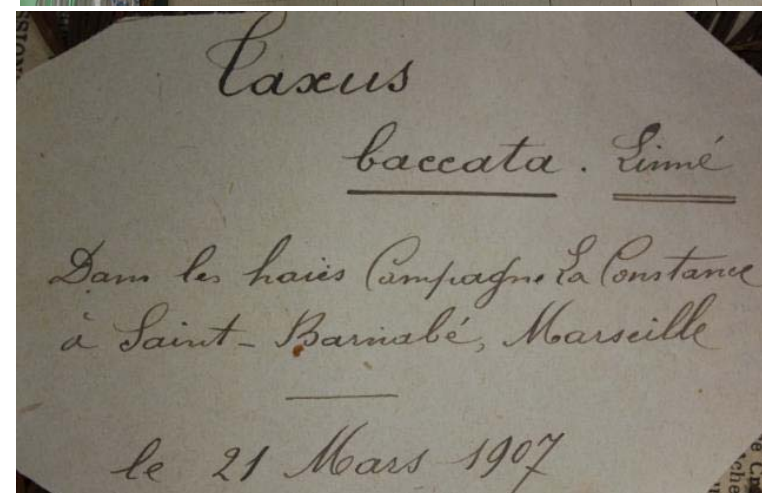 Taxus
baccata. Linné
Dans les haies Campagne La Constance
à Saint-Barnabé, Marseille
le 21 Mars 1907